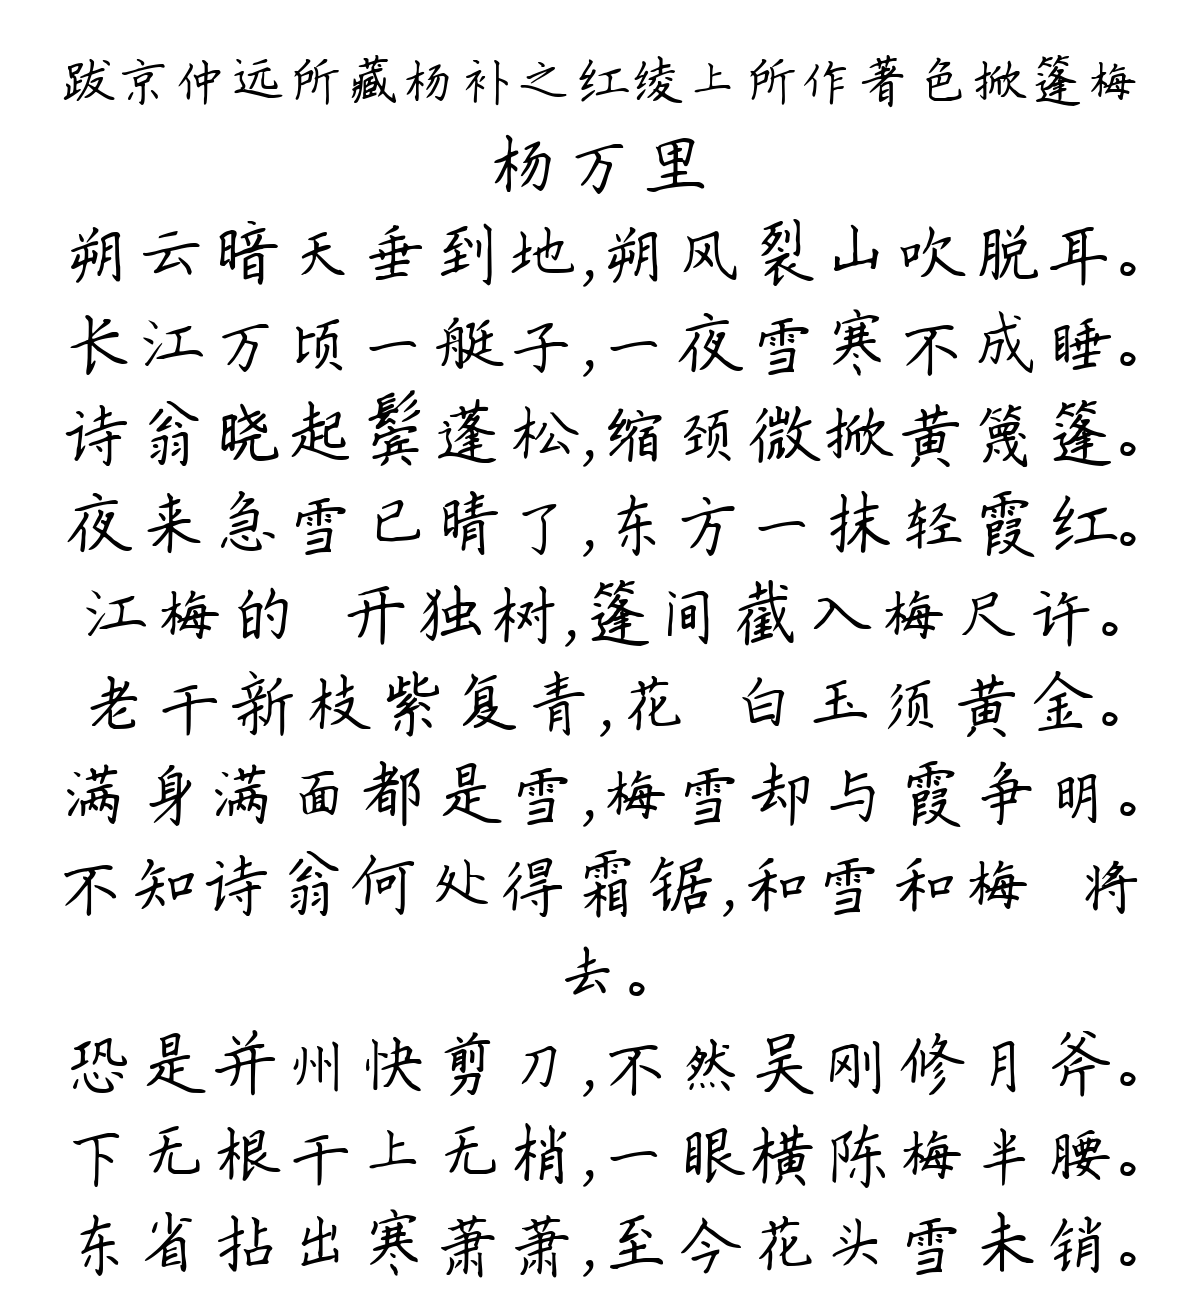 跋京仲远所藏杨补之红绫上所作著色掀篷梅
杨万里
朔云暗天垂到地,朔风裂山吹脱耳。
长江万顷一艇子,一夜雪寒不成睡。
诗翁晓起鬓蓬松,缩颈微掀黄篾篷。
夜来急雪已晴了,东方一抹轻霞红。
江梅的 开独树,篷间截入梅尺许。
老干新枝紫复青,花 白玉须黄金。
满身满面都是雪,梅雪却与霞争明。
不知诗翁何处得霜锯,和雪和梅 将
去。
恐是并州快剪刀,不然吴刚修月斧。
下无根干上无梢,一眼横陈梅半腰。
东省拈出寒萧萧,至今花头雪未销。